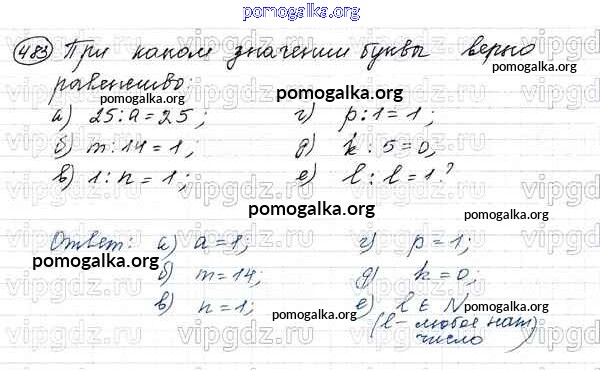 pomogalka.org
483 При каком значении буквы верно
равенство:
а) 25:a=25; г) p:1=1;
б) m:14=1; д) k:5=0,
в) 1:n=1; е) l:l=1?
Ответ: а) a=1; г) p=1;
б) m=14; д) k=0;
в) n=1; е) l∈N
(l-любое нат.
число)
pomogalka.org
pomogalka.org
pomogalka.org
pomogalka.org
pomogalka.org
pomogalka.org
pomogalka.org
pomogalka.org
pomogalka.org
pomogalka.org
pomogalka.org
pomogalka.org
pomogalka.org